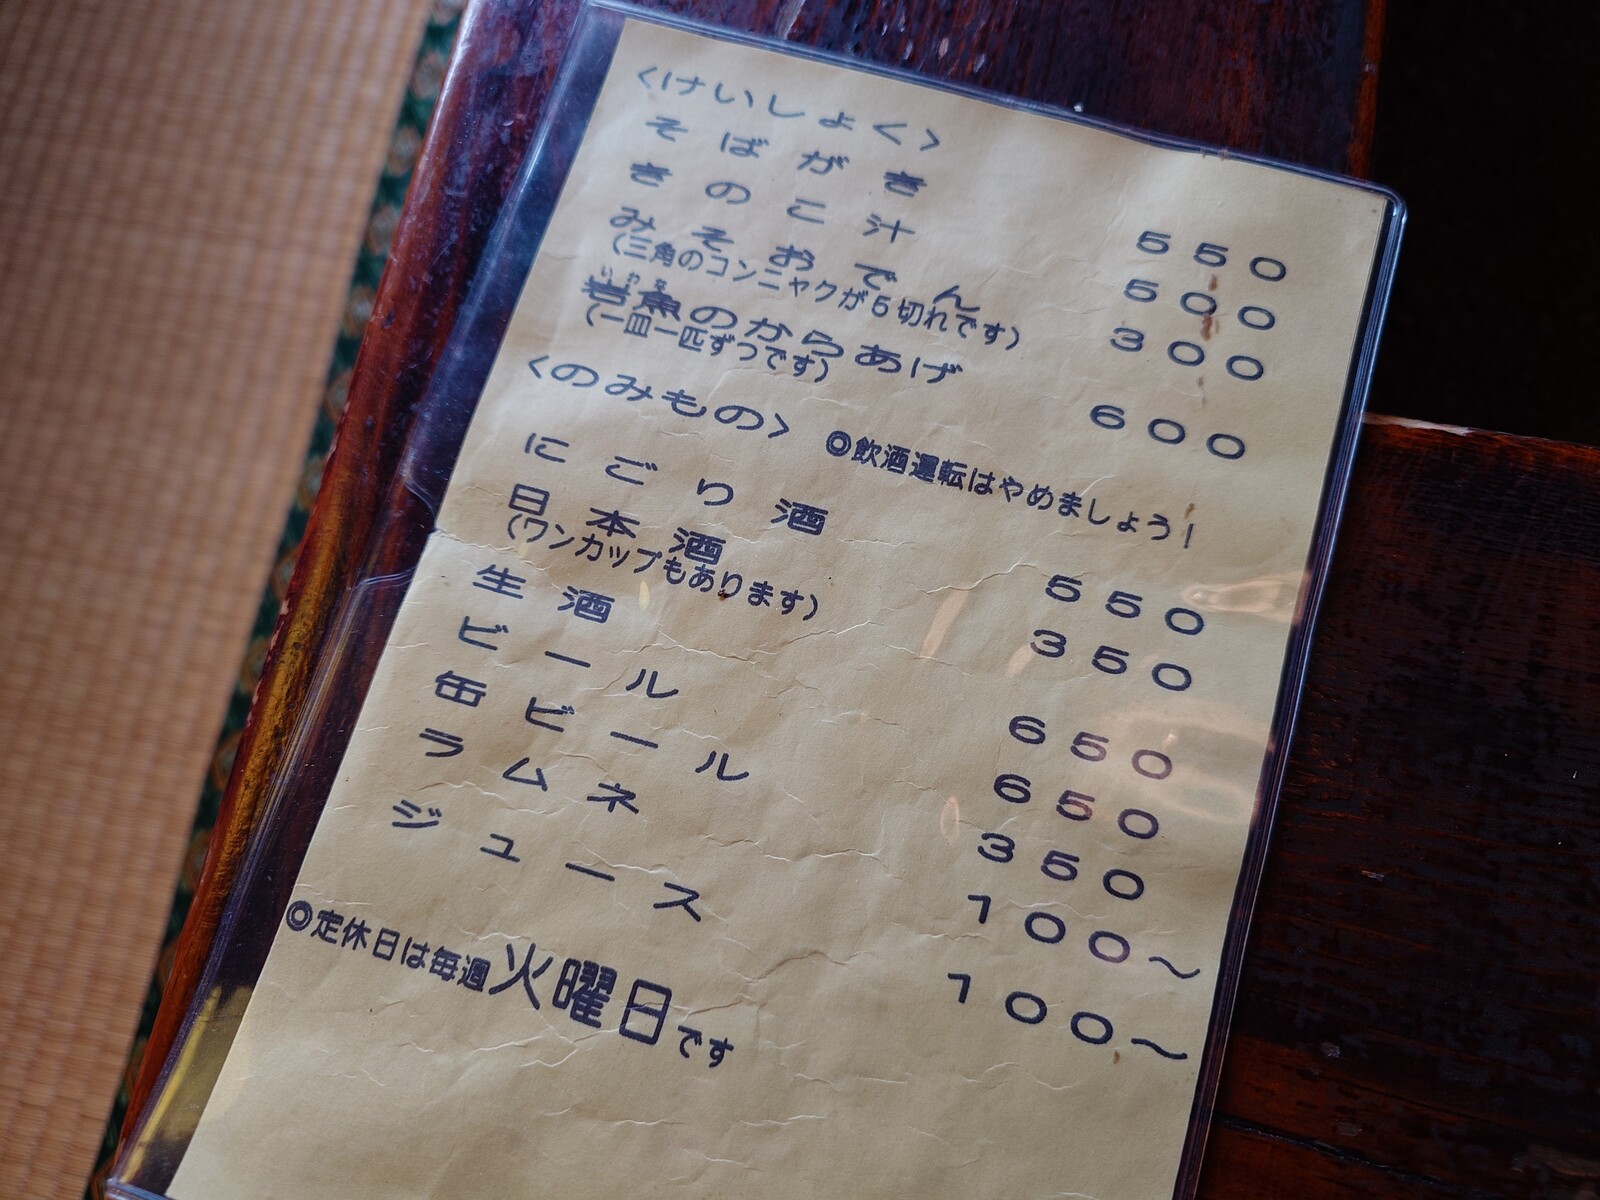 <けいしょく>
そばがき 550
きのこ汁 500
みそおでん 300
(三角のコンニャクが5切れです)
いわな
岩魚のからあげ 600
(一皿一匹ずつです)
<のみもの> ◎飲酒運転はやめましょう!
にごり酒 550
日本酒 350
(ワンカップもあります)
生酒 650
ビール 650
缶ビール 350
ラムネ 100～
ジュース 100～
◎定休日は毎週火曜日です